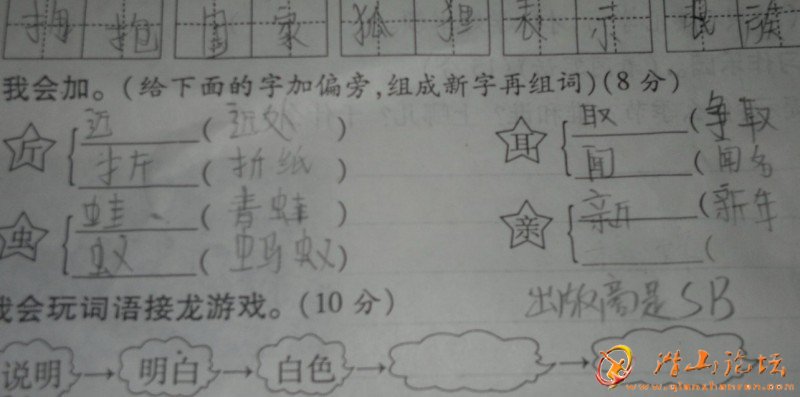 拥 抱 国 家 狐 狸 表 示 民 族
我会加。(给下面的字加偏旁,组成新字再组词)(8分)
斤 近 (近处) 耳 取 (争取
折 (折纸) 闻 (闻名
虫 蛙 (青蛙) 亲 新 (新年
蚁 (蚂蚁) (
我会玩词语接龙游戏。(10分) 出版商是SB
说明 → 明白 → 白色 → →
潜山论坛
www.qianshanren.com